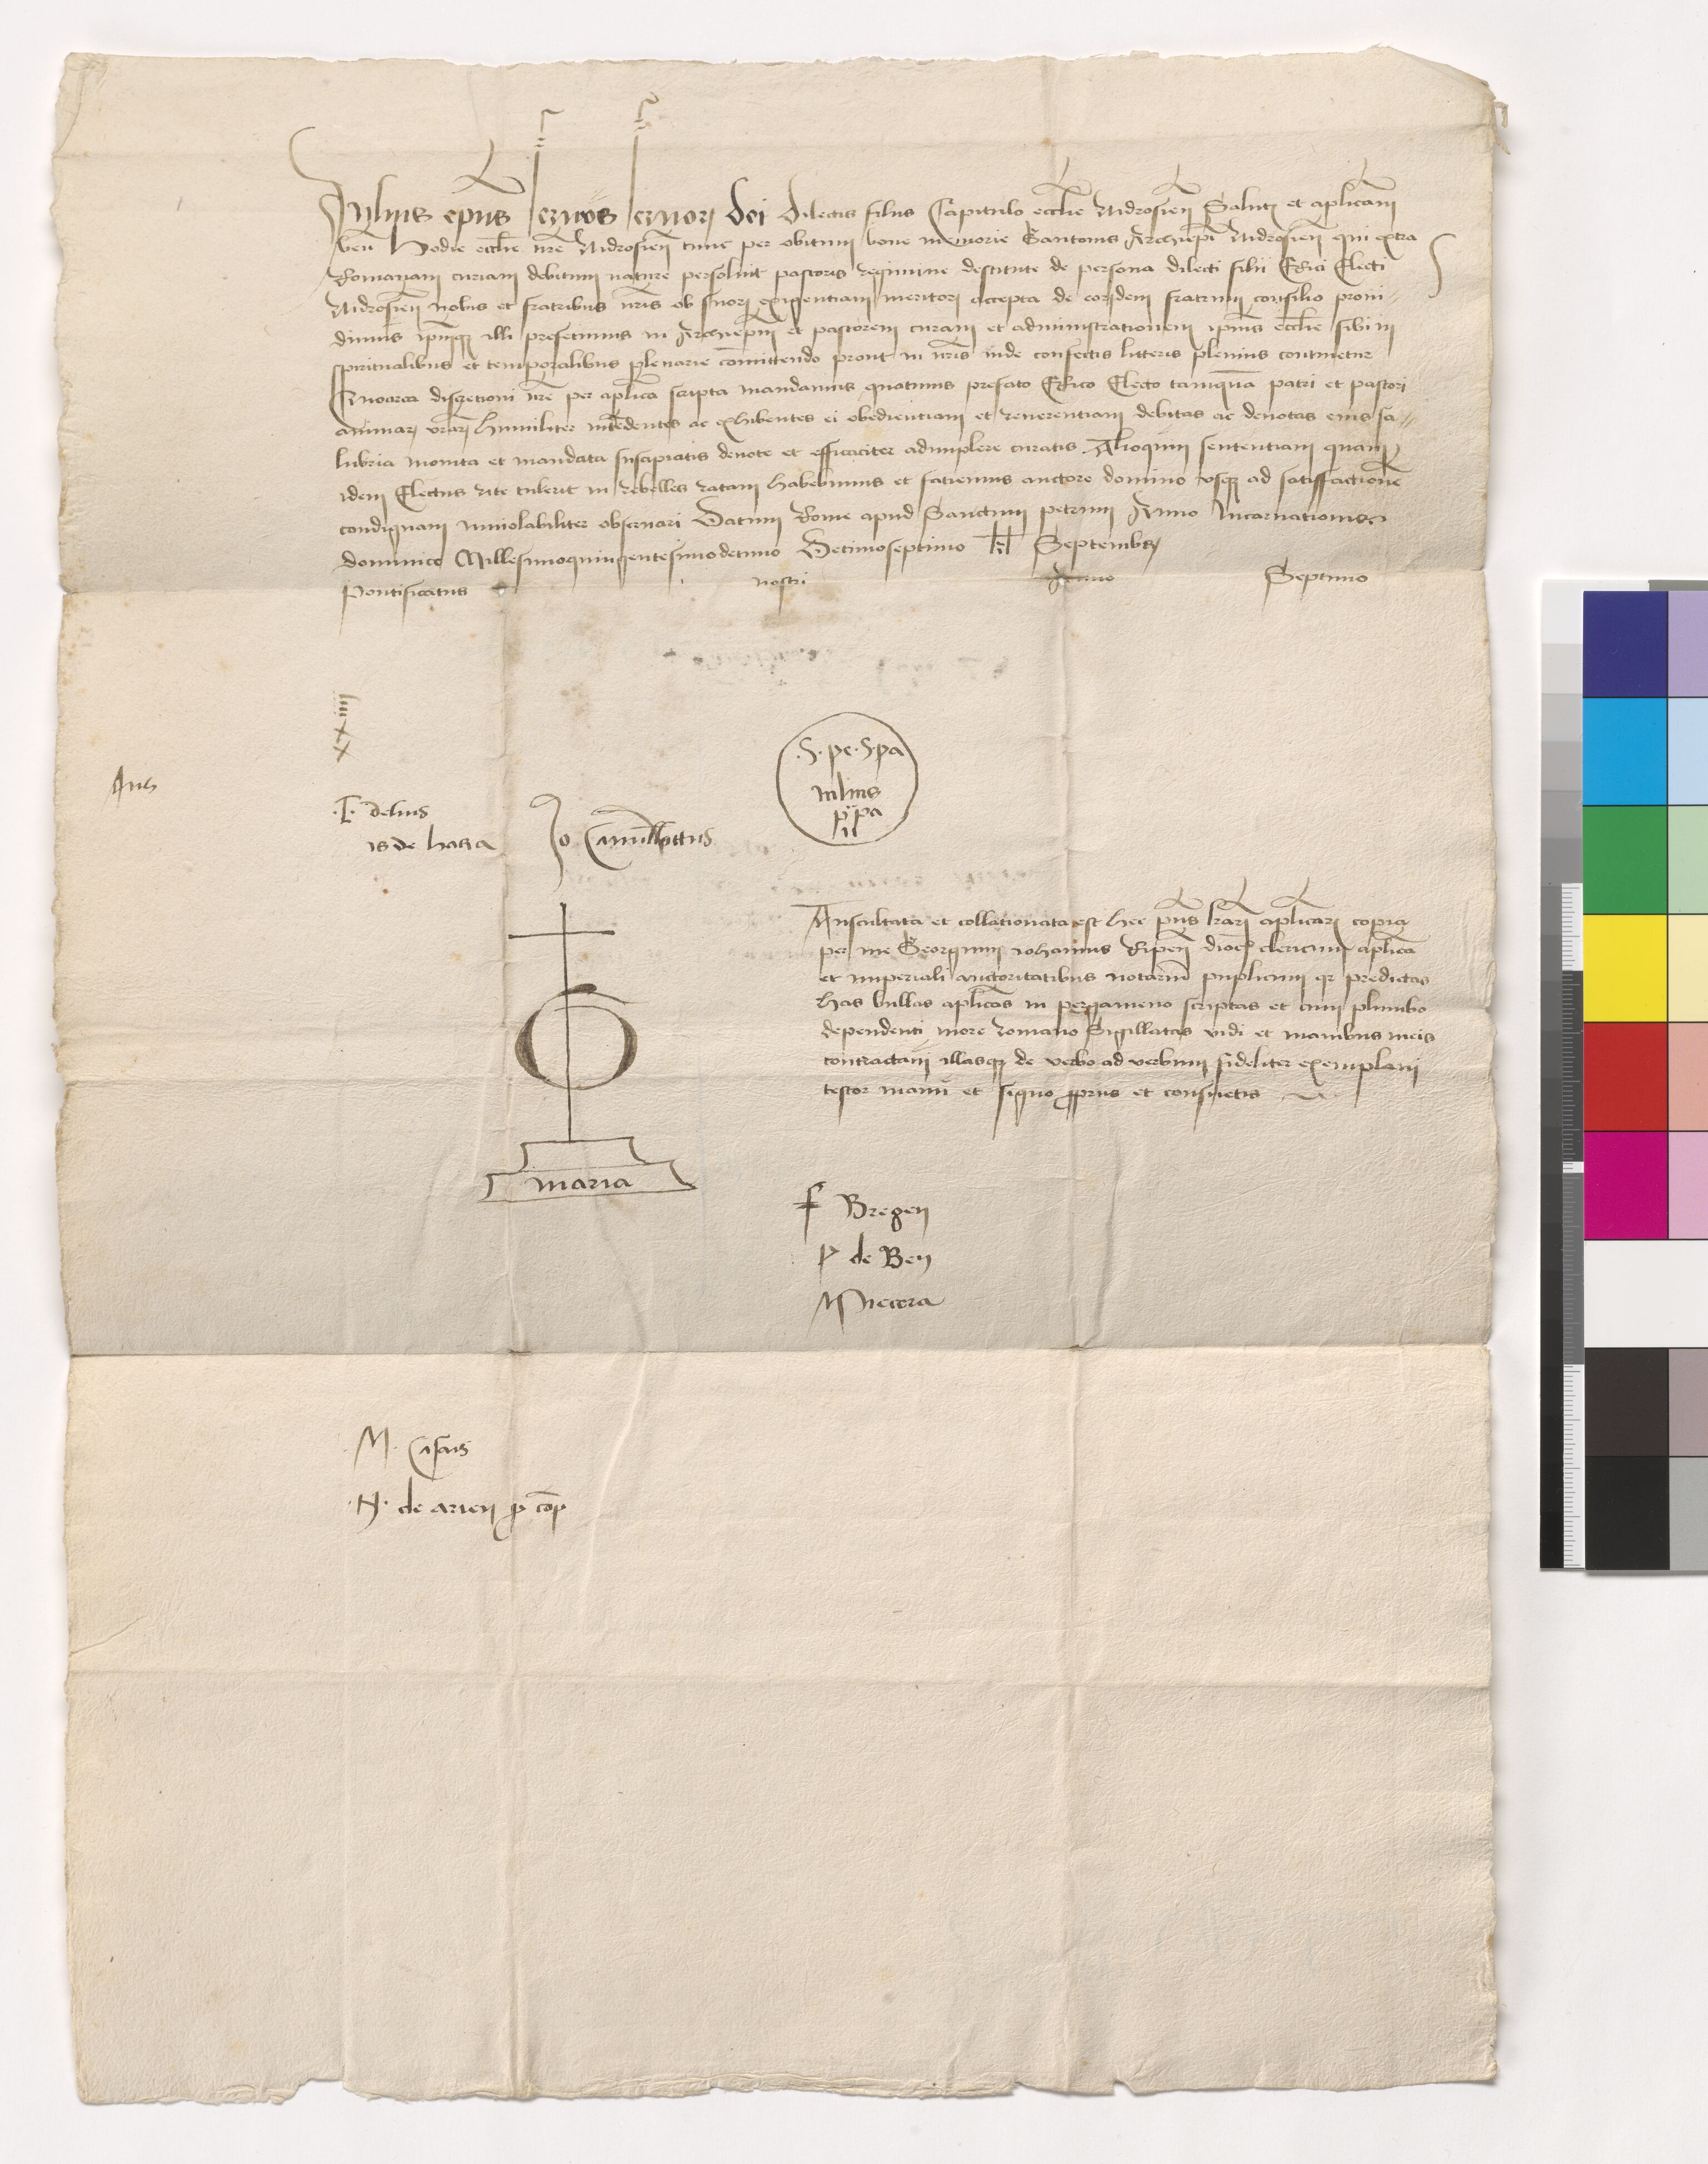 Julius ep̄us seruꝯ seruoꝝ dei Dilectis filiis Capitulo ecc̄lie Nidrosien̄ Salut̄ et ap̄licam
ben̄ Hodie ecc̄lie n̄re Nidrosien̄ tunc per obitum bone memorie Gautonis Archiep̄i Nidrosien̄ qui extra
Romanam curiam debitum nature persoluit pastoris regimine destitute de persona dilecti filii Erici Electi
Nidrosien̄ nobis et fratribus n̄ris ob suoꝝ exigentiam meritoꝝ accepta de eorꝝdem fratrum consilio proui-
dimus ip̄umqꝫ illi prefecimus in Archiep̄m et pastorem curam et administrationem ip̄ius ecc̄lie sibi in
spiritualibus et temporalibus plenarie com̄ittendo prout in n̄ris inde confectis litteris plenius continetur
Quocirca discretioni v̄re per ap̄lica scripta mandamus quatinus prefato Erico Electo tamquā patri et pastori
animaꝝ v̄raꝝ humiliter intēdentes ac exhibentes ei obedientiam et reuerentiam debitas ac deuotas eius sa-
lubria monita et mandata suscipiatis deuote et efficaciter adimplere curatis Alioquin sententiam quam
idem Electus rite tulerit in rebelles ratam habebimus et faciemus auctore domino vsqꝫ ad satisfactionē
condignam inuiolabiliter obseruari Datum Rome apud Sanctum petrum Anno Incarnationis
dominice Millesimoquingentesimodecimo Decimoseptimo kl Septembꝝ
Pontificatus nostri Anno Septimo
xxiiii
Aug
.S. pe. S. pa
iulius
papa
ii
.T. delius
is de hasa
Jo Camillettus
Auscultata et collationata est hec p̄ns l̄rarꝝ ap̄licarꝝ copia
per me Georgium iohannis Ripen̄ dioc̄ clericum ap̄lica
et imperiali auctoritatibus notariū puplicum qr̄ predictas
has bullas ap̄licas in pergameno scriptas et cum plumbo
dependenti more romano Sigillatas vidi et manibus meis
contractaui illasqꝫ de verbo ad verbum fideliter exemplaui
testor manu et signo ꝓpriis et consuetis
maria
f Bregen
P de Ben
M. Casaiis
.N. de arien ꝓ cōp